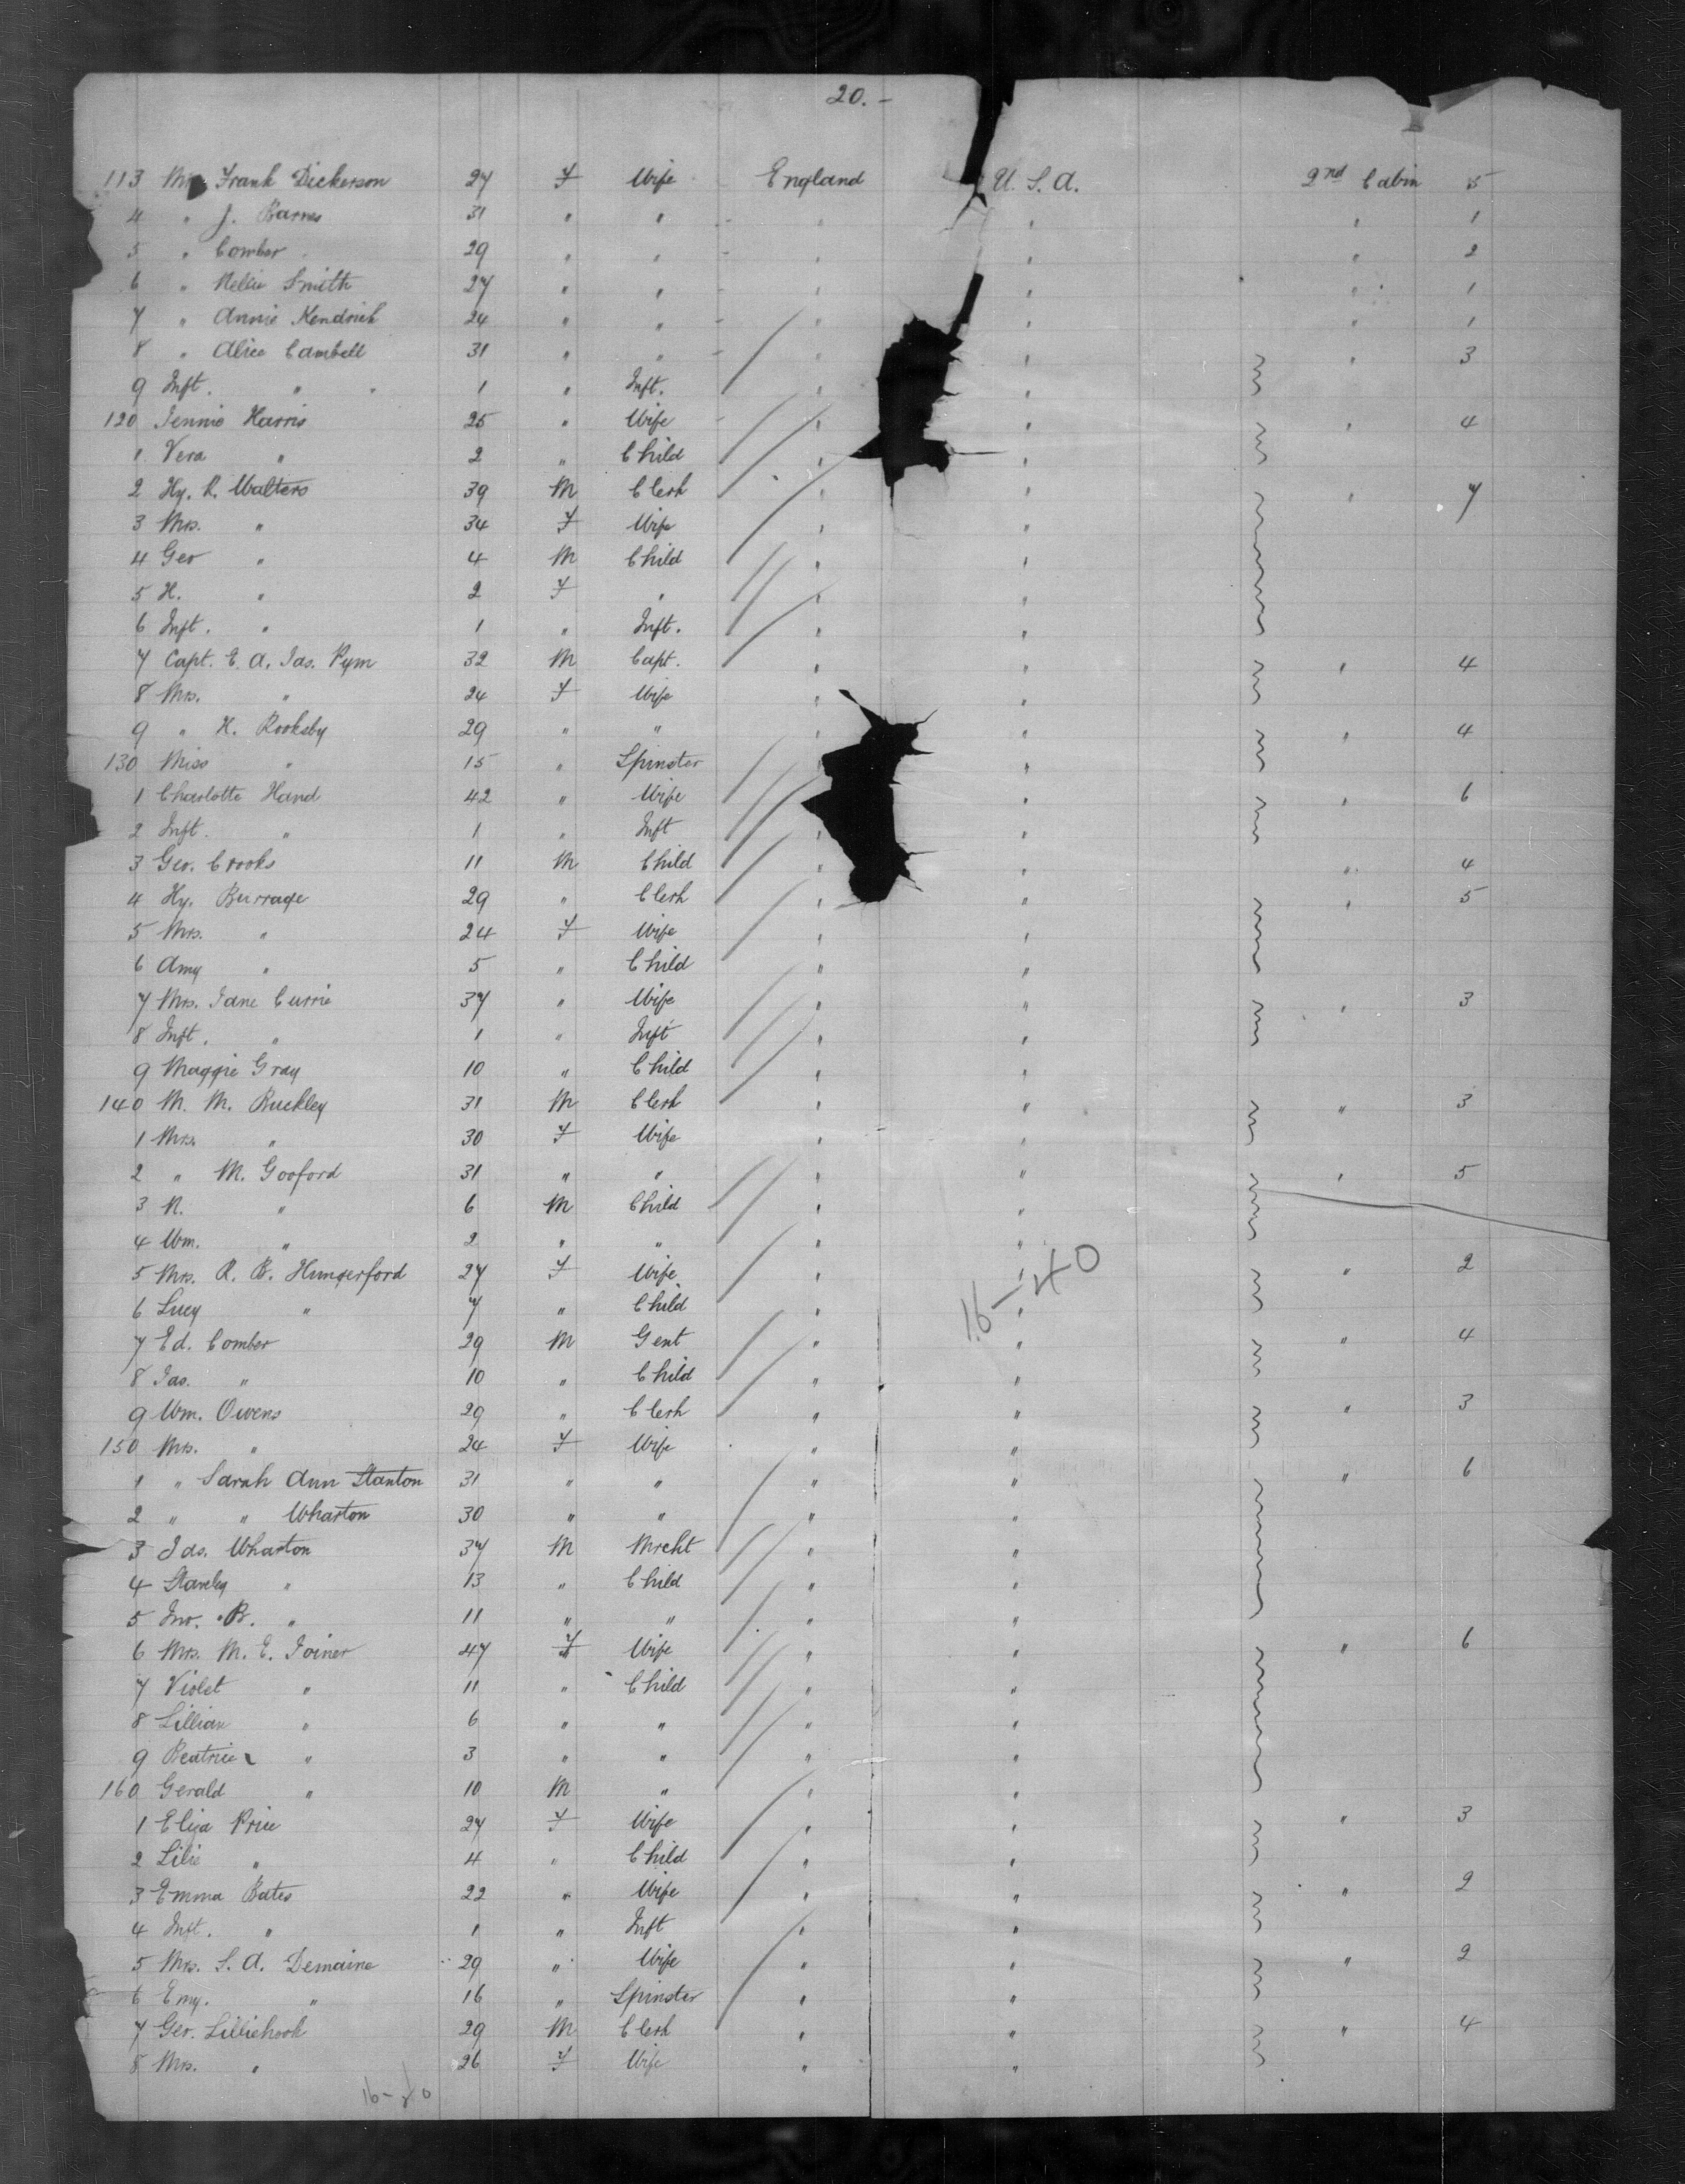 20.-
113 Mrs Frank Dickerson 27 F Wife England U.S.A. 2nd Cabin 5
4 " J. Barnes 31 " " - " " " 1
5 " Comber 29 " " - " " " 2
6 " Nellie Smith 27 " " - " " " 1
7 " Annie Kendrick 24 " " - " " " 1
8 " Alice Cambell 31 " " - " " " 3
9 Inft. " 1 " Inft. " "
120 Jennie Harris 25 " Wife - " " " 4
1 Vera " 2 " Child " "
2 Hy. R. Walters 39 M Clerk " " " 7
3 Mrs. " 34 F Wife " "
4 Geo " 4 M Child " "
5 H. " 2 F " " "
6 Inft. " 1 " Inft. " "
7 Capt. E. A. Jas. Pym 32 M Capt. " " " 4
8 Mrs. " 24 F Wife " "
9 " H. Rooksby 29 " " " " " 4
130 Miss " 15 " Spinster " "
1 Charlotte Hand 42 " Wife " " " 6
2 Inft. " 1 " Inft " "
3 Geo. Crooks 11 M Child " " " 4
4 Hy. Burrage 29 " Clerk " " " 5
5 Mrs. " 24 F Wife " "
6 Amy " 5 " Child " "
7 Mrs. Jane Currie 37 " Wife " " " 3
8 Inft. " 1 " Inft " "
9 Maggie Gray 10 " Child " "
140 M. M. Buckley 31 M Clerk " " " 3
1 Mrs. " 30 F Wife " "
2 " M. Gooford 31 " " " " " 5
3 N. " 6 M Child " "
4 Wm. " 2 " " " "
5 Mrs. R. B. Hungerford 27 F Wife " " " 2
6 Lucy " 7 " Child " "
16-40
7 Ed. Comber 29 M Gent " " " 4
8 Jas. " 10 " Child " "
9 Wm. Owens 29 " Clerk " " " 3
150 Mrs. " 24 F Wife " "
1 " Sarah Ann Stanton 31 " " " " " 6
2 " " Wharton 30 " " " "
3 Jas. Wharton 37 M Mrcht " "
4 Stanley " 13 " Child " "
5 Jno. B. " 11 " " " "
6 Mrs. M. E. Joiner 47 F Wife " " " 6
7 Violet " 11 " Child " "
8 Lillian " 6 " " " "
9 Beatrice " 3 " " " "
160 Gerald " 10 M " " "
1 Eliza Price 27 F Wife " " " 3
2 Lilie " 4 " Child " "
3 Emma Bates 22 " Wife " " " 2
4 Inft. " 1 " Inft " "
5 Mrs. S. A. Demaine 29 " Wife " " " 2
6 Emy. " 16 " Spinster " "
7 Geo. Lilliehook 29 M Clerk " " " 4
8 Mrs. " 26 F Wife " "
16-40